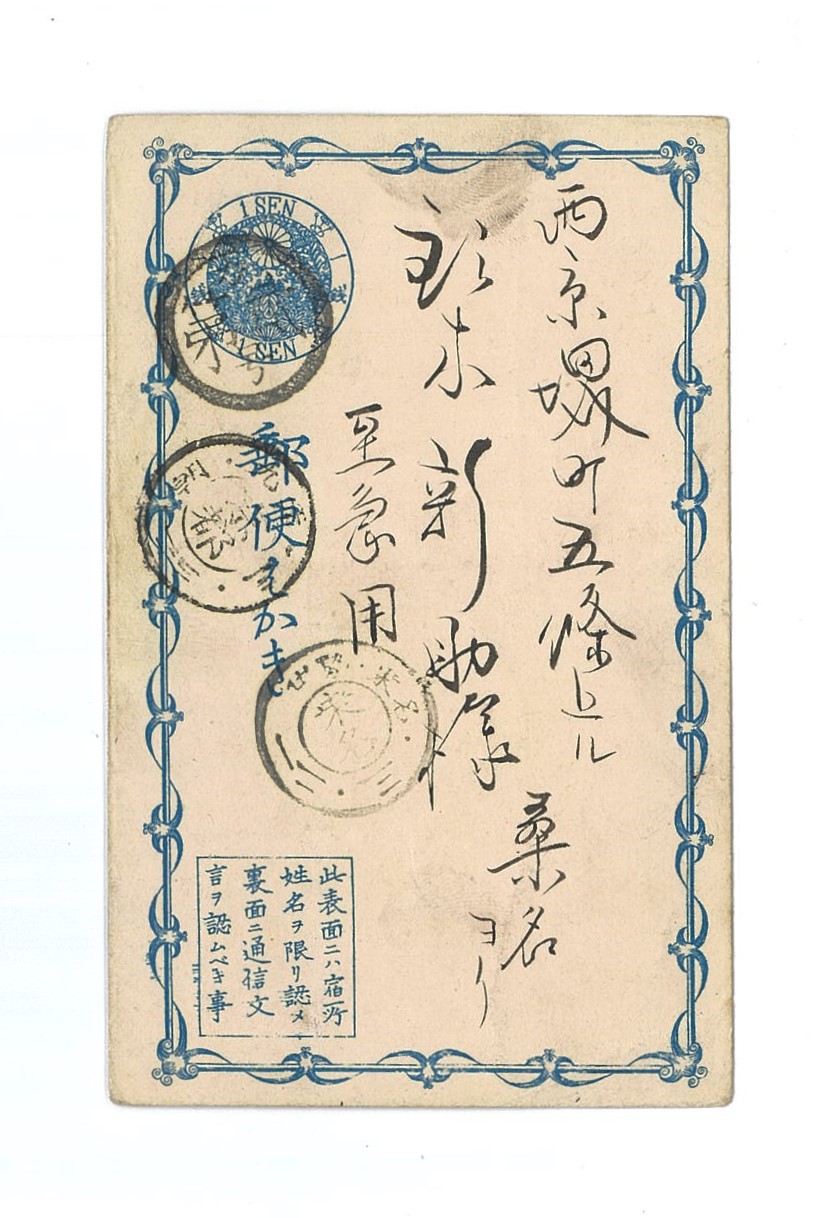 西京堺町五條上ル
新助様
桑名
ヨリ
至急用
1 SEN
一
銭
1 SEN
郵便はかき
桑名
此表面ニハ宿所
姓名ヲ限リ認メ
裏面ニ通信文
言ヲ認ムベキ事